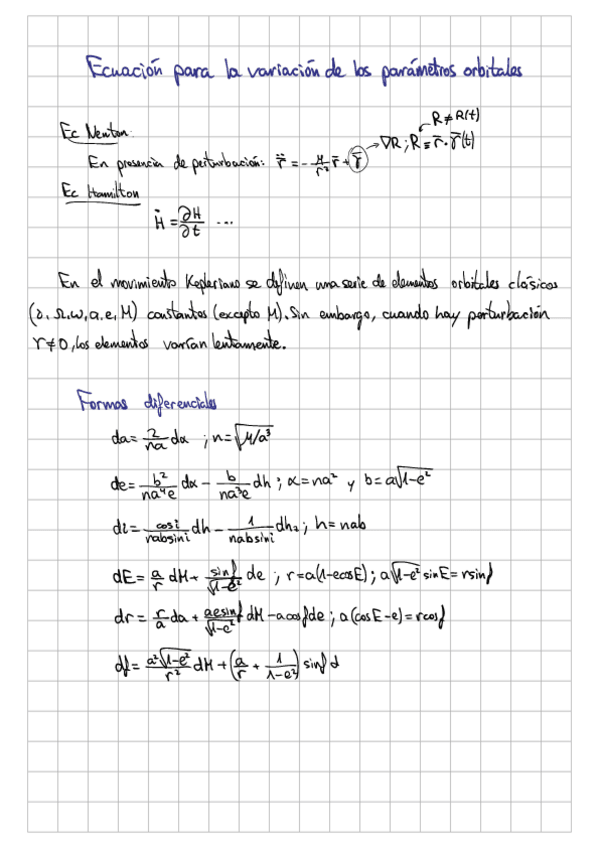 Ecuación para la variación de los parámetros orbitales
R≠R(t)
Ec Newton:
En presencia de perturbación: r̈ = -μ/r² r̄ + γ̄ → ∇R ; R ≡ r̄·γ̄(t)
Ec Hamilton
Ḣ = ∂H/∂t ...
En el movimiento Kepleriano se definen una serie de elementos orbitales clásicos
(i, Ω, ω, a, e, M) constantes (excepto M). Sin embargo, cuando hay perturbación
γ≠0, los elementos varían lentamente.
Formas diferenciales
da = 2/(na) dα ; n = √(μ/a³)
de = b²/(na⁴e) dα - b/(na³e) dh ; α = na² y b = a√(1-e²)
di = cosi/(nabsini) dh - 1/(nabsini) dh₂ ; h = nab
dE = a/r dM + sinf/√(1-e²) de ; r = a(1-ecosE) ; a√(1-e²) sinE = rsinf
dr = r/a da + aesinf/√(1-e²) dM - acosfde ; a(cosE-e) = rcosf
df = a²√(1-e²)/r² dM + (a/r + 1/(1-e²)) sinf d